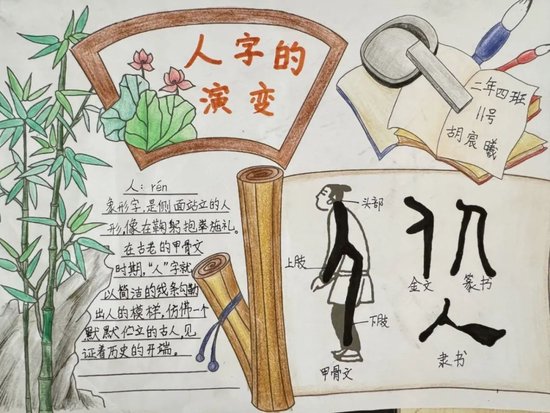 人字的
演变
二年四班
11号
胡宸曦
人：rén
象形字，是侧面站立的人
形，像在鞠躬抱拳施礼。
在古老的甲骨文
时期，“人”字就
以简洁的线条勾勒
出人的模样，仿佛一个
默默伫立的古人，见
证着历史的开端。
头部
上肢
下肢
甲骨文
金文
篆书
人
隶书